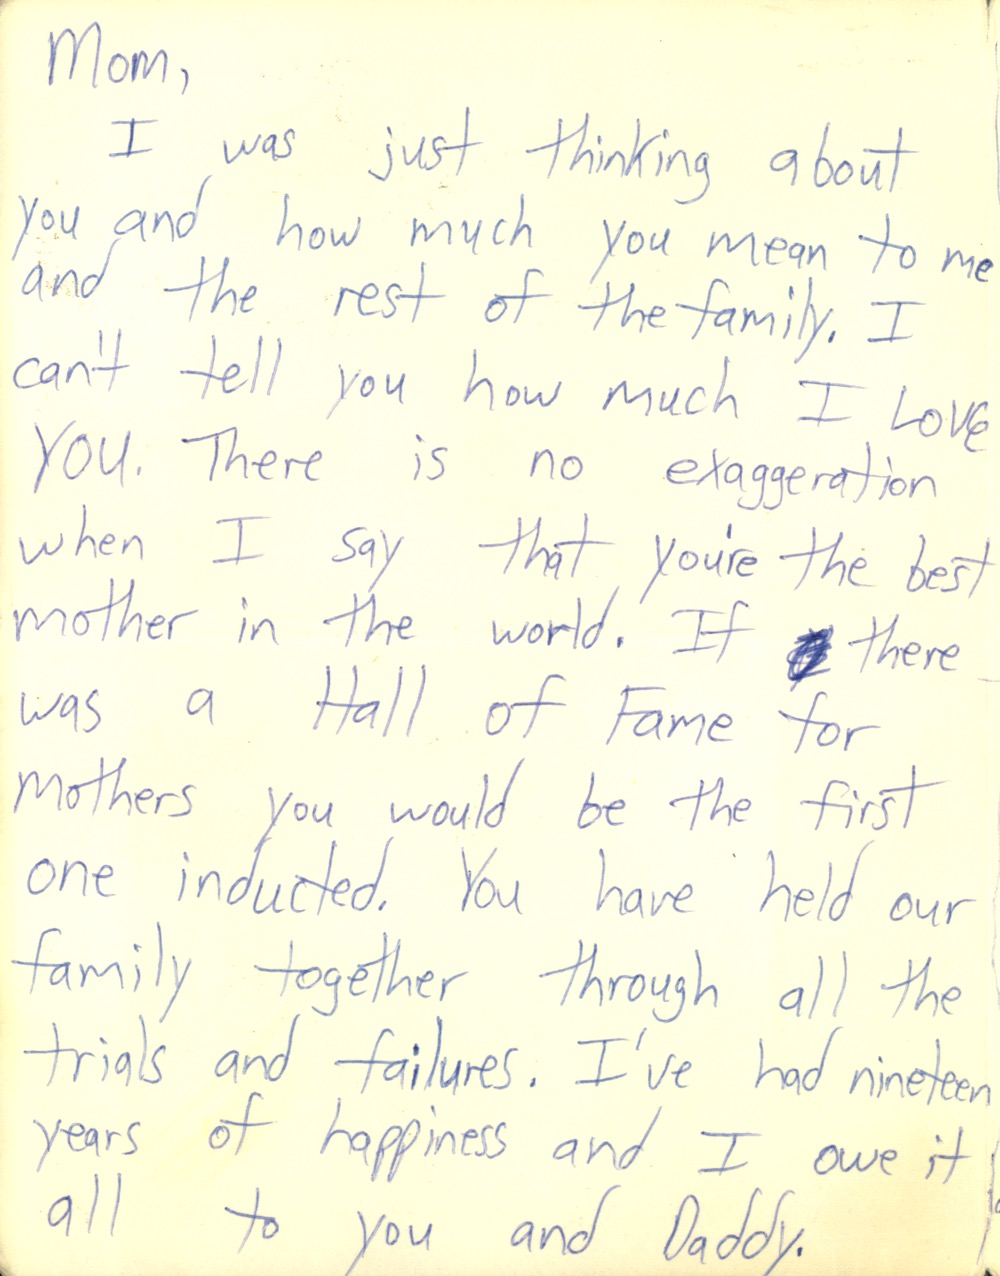 Mom,
I was just thinking about
you and how much you mean to me
and the rest of the family. I
can't tell you how much I LOVE
YOU. There is no exaggeration
when I say that you're the best
mother in the world. If there
was a Hall of Fame for
mothers you would be the first
one inducted. You have held our
family together through all the
trials and failures. I've had nineteen
years of happiness and I owe it
all to you and Daddy.